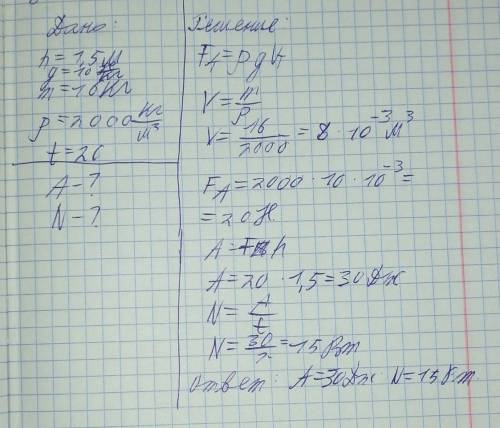 Дано:
h = 1,5 м
g = 10 Н/кг
m = 16 кг
ρ = 2000 кг/м³
t = 2с
A - ?
N - ?
Решение:
F_A = ρ g V
V = m/ρ
V = 16/2000 = 8 · 10⁻³ м³
F_A = 2000 · 10 · 10⁻³ =
= 20 Н.
A = F h
A = 20 · 1,5 = 30 Дж
N = A/t
N = 30/2 = 15 Вт
Ответ: A = 30 Дж N = 15 Вт.